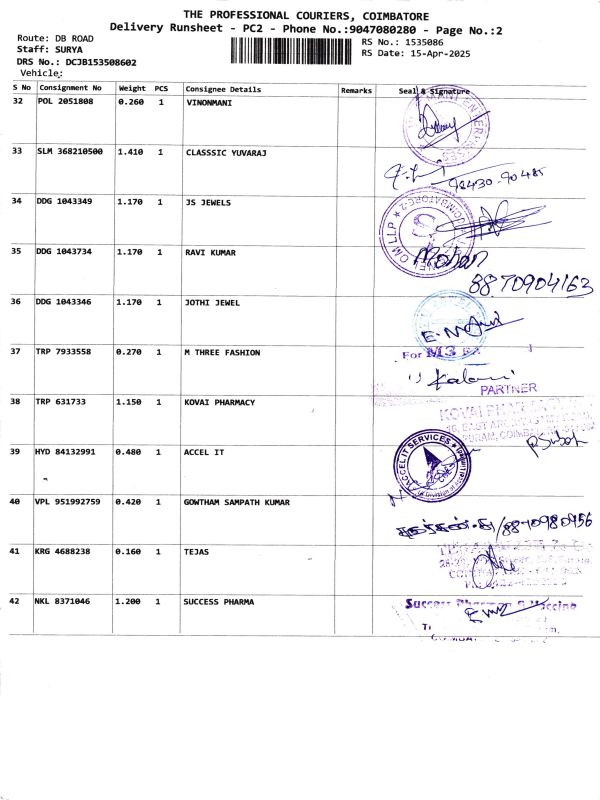 THE PROFESSIONAL COURIERS, COIMBATORE
Delivery Runsheet - PC2 - Phone No.:9047080280 - Page No.:2
Route: DB ROAD
Staff: SURYA
DRS No.: DCJB153508602
Vehicle:
RS No.: 1535086
RS Date: 15-Apr-2025
S No Consignment No Weight PCS Consignee Details Remarks Seal & Signature
32 POL 2051808 0.260 1 VINONMANI
33 SLM 368210500 1.410 1 CLASSSIC YUVARAJ
98430-90485
34 DDG 1043349 1.170 1 JS JEWELS
35 DDG 1043734 1.170 1 RAVI KUMAR
Mohan
8870904163
36 DDG 1043346 1.170 1 JOTHI JEWEL
37 TRP 7933558 0.270 1 M THREE FASHION
For M3
PARTNER
38 TRP 631733 1.150 1 KOVAI PHARMACY
KOVAI PHARMACY
39 HYD 84132991 0.480 1 ACCEL IT
ACCEL IT SERVICES
40 VPL 951992759 0.420 1 GOWTHAM SAMPATH KUMAR
8870980956
41 KRG 4688238 0.160 1 TEJAS
42 NKL 8371046 1.200 1 SUCCESS PHARMA
Success Pharma & Vaccine